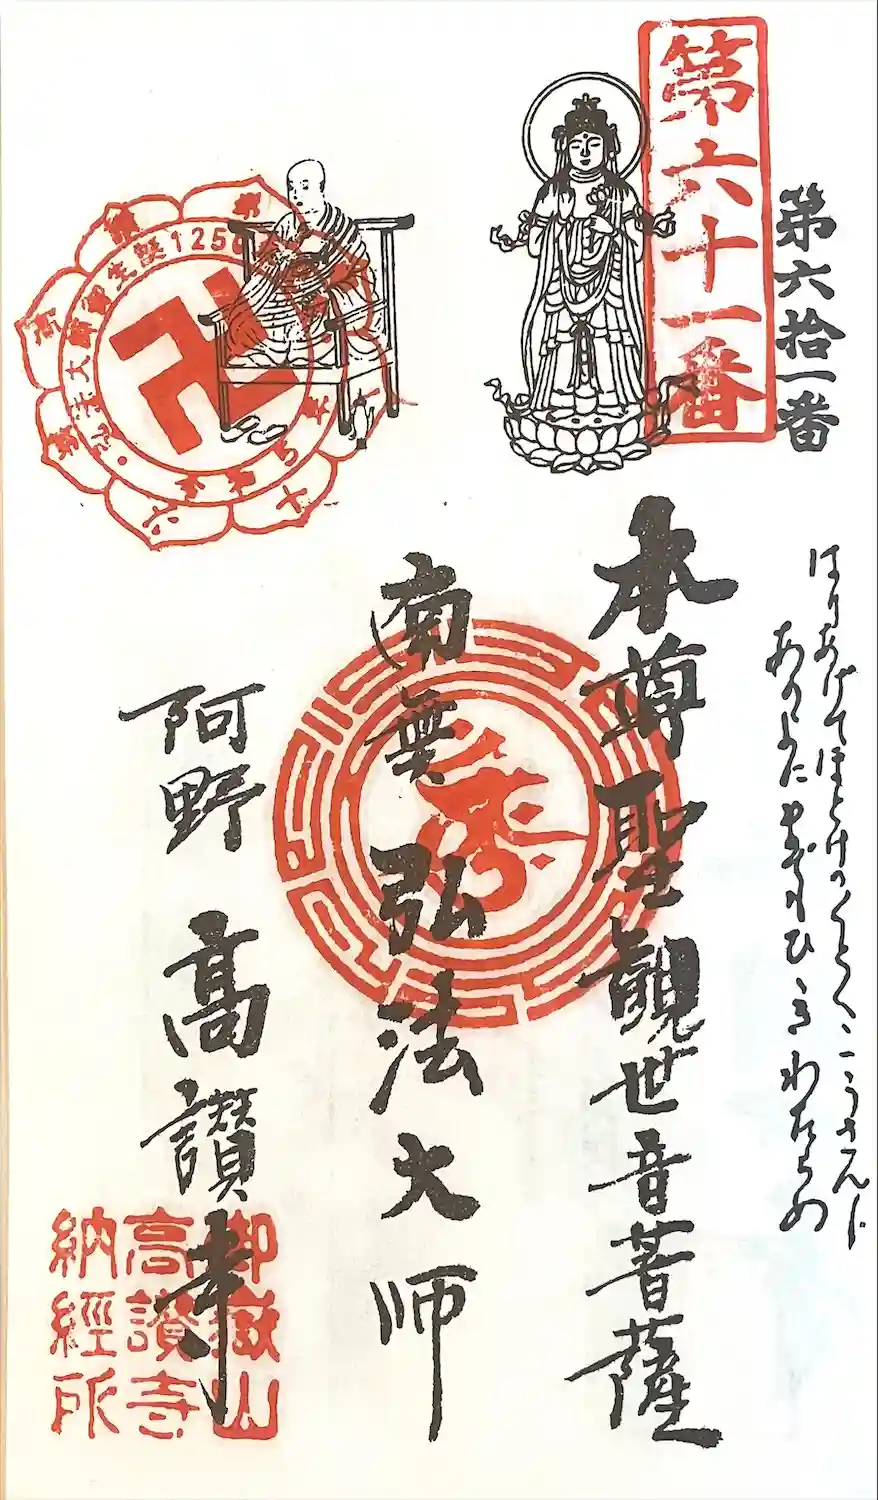 第六十一番
第六拾一番
はりあげてほとけのくとくこうさんじ
あのよにまでもひゞきわたらめ
本尊聖観世音菩薩
南無弘法大師
阿野 高讃寺
弘法大師御生誕1250
令和5
卍
御嶽山
高讃寺
納經所